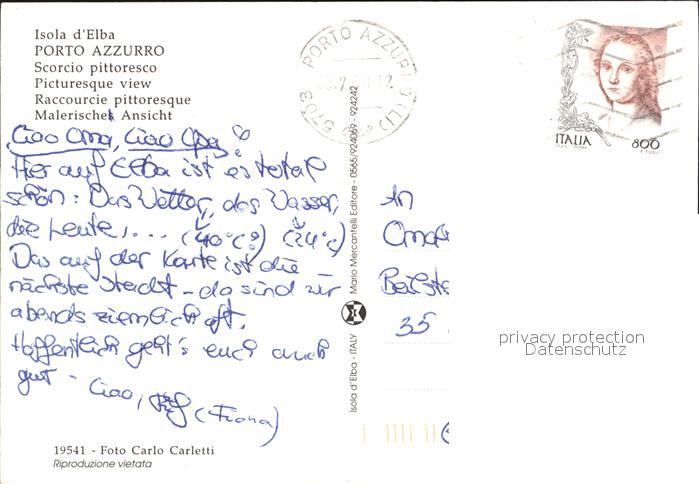 Isola d'Elba
PORTO AZZURRO
Scorcio pittoresco
Picturesque view
Raccourcie pittoresque
Malerische Ansicht
Ciao Oma, Ciao Opa
Hier auf Elba ist es total
schön: Das Wetter, das Wasser,
die Leute, ... (40°C) (24°C)
Das auf der Karte ist die
nächste Stadt - da sind wir
abends ziemlich oft.
Hoffentlich geht's euch auch
gut - Ciao, (Fiona)
19541 - Foto Carlo Carletti
Riproduzione vietata
Isola d'Elba - ITALY Mario Mercantelli Editore - 0565/924069 - 924242
PORTO AZZURRO (LI)
ITALIA 800
An
Oma
35
privacy protection
Datenschutz